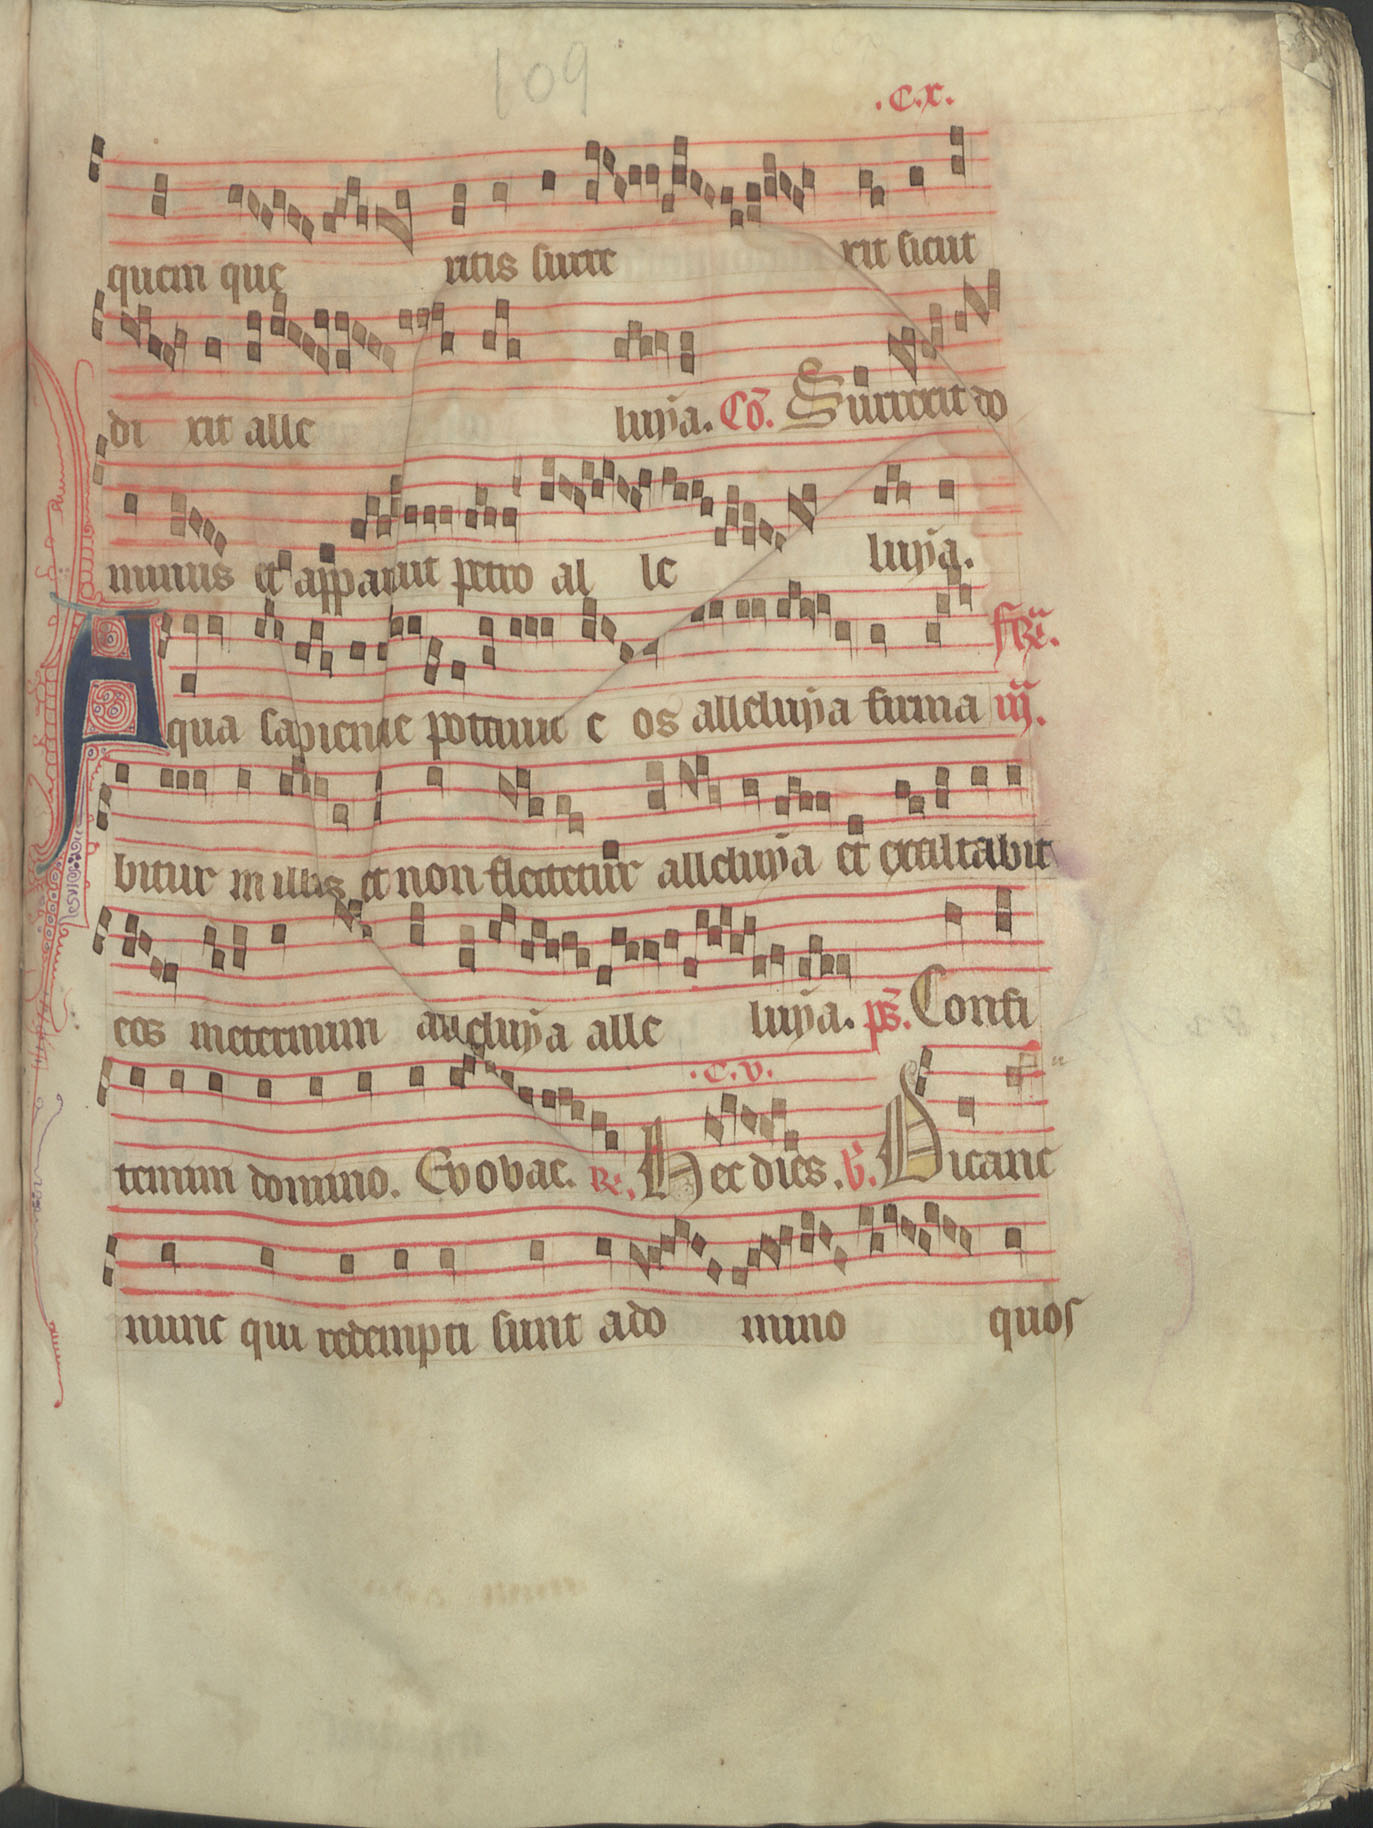 109
.c.x.
quem que ritis surre xit sicut
di xit alle luya. Cō. Surrexit do
minus et apparuit petro al le luya.
Aqua sapientie potauit e os alleluya firma
bitur in illis et non flectetur alleluya et exaltabit
eos ineternum alleluya alle luya. ps̄. Confi
.c.v.
temini domino. Evovae. R. Hec dies. V. Dicant
nunc qui redempti sunt a do mino quos